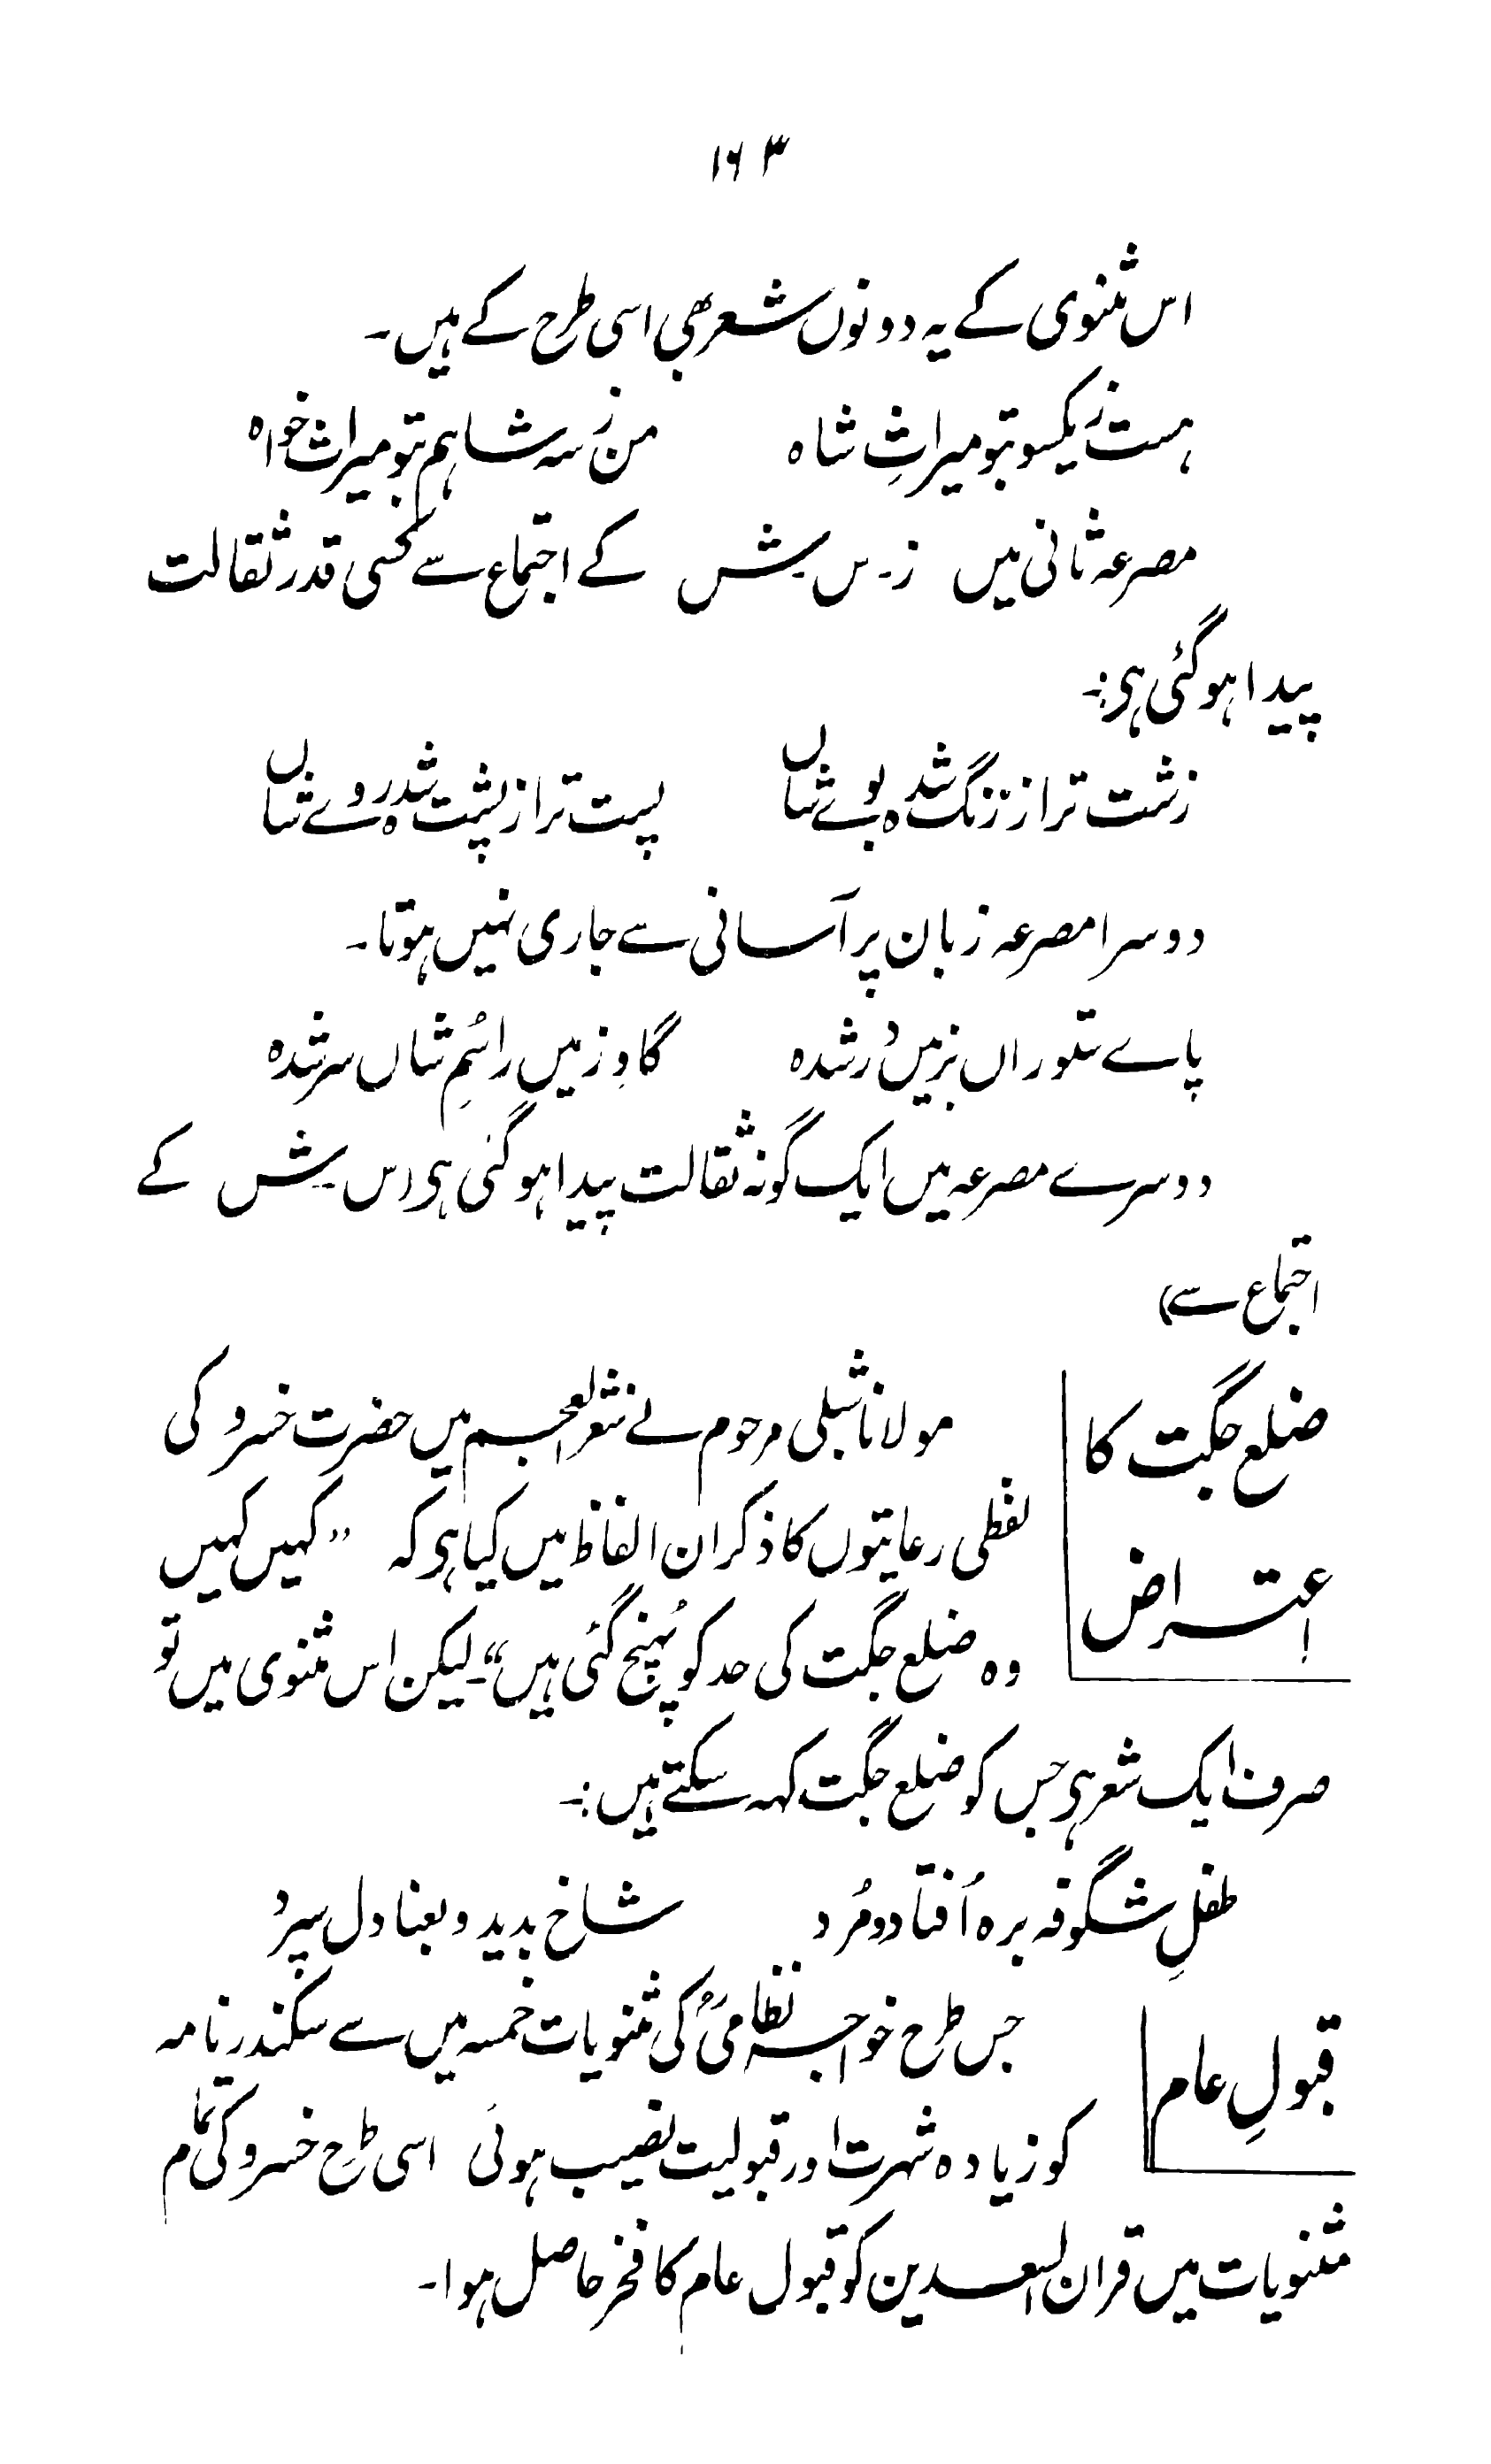 ۱۶۳
اس مثنوی کے یہ دونوں شعر بھی اسی طرح کے ہیں۔
ہست زیکسو بتو میراثِ شاہ من زسہ شاہم بتو میراث خواہ
مصرعہ ثانی میں ز۔ س۔ ش کے اجتماع سے کسی قدر ثقالت
پیدا ہو گئی ہی:۔
زشت تر از زنگ شدہ بوے شاں پست تر از پشت شدہ روے شاں
دوسرا مصرعہ زبان پر آسانی سے جاری نہیں ہوتا۔
پاے ستوراں بزمیں دُر شدہ گاوِ زمیں را سُمِ شاں سر شدہ
دوسرے مصرعہ میں ایک گونہ ثقالت پیدا ہو گئی ہی (س۔ ش کے
اجتماع سے)
ضلع جگت کا
اعتراض
مولانا شبلی مرحوم نے شعر العجم میں حضرت خسرو کی
لفظی رعایتوں کا ذکر ان الفاظ میں کیا ہی کہ ”کہیں کہیں
وہ ضلع جگت کی حد کو پُہنچ گئی ہیں“۔ لیکن اس مثنوی میں تو
صرف ایک شعر ہی جس کو ضلع جگت کہہ سکتے ہیں:۔
طفلِ شگوفہ برہ اُفتاد و مُرد شاخ بدید و بعنا دل سپرد
قبولِ عام
جس طرح خواجہ نظامیؒ کی مثنویات خمسہ میں سے سکندر نامہ
کو زیادہ شہرت اور قبولیت نصیب ہوئی اسی طرح خسرو کی تمام
مثنویات میں قران السعدین کو قبول عام کا فخر حاصل ہوا۔